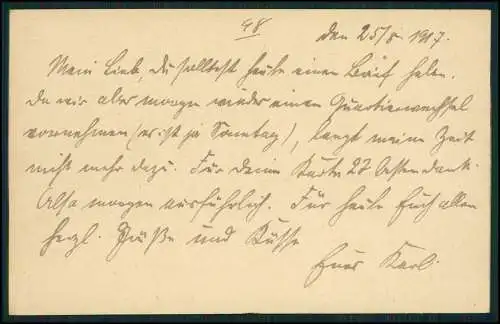 48
den 25/8. 1917.
Mein Lieb, Du solltest heute einen Brief haben.
Da wir aber morgen wieder einen Quartierwechsel
vornehmen (es ist ja Sonntag), langt meine Zeit
nicht mehr dazu. Für Deine Karte 27 besten Dank.
Also morgen ausführlich. Für heute Euch allen
herzl. Grüße und Küsse
Euer Karl.